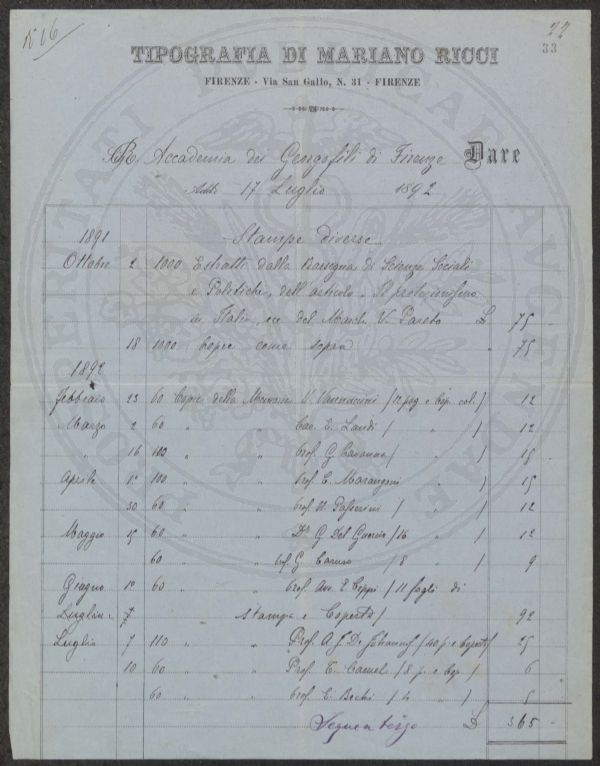 1516
22
33
TIPOGRAFIA DI MARIANO RICCI
FIRENZE - Via San Gallo, N. 31 - FIRENZE
R. Accademia dei Georgofili di Firenze Dare
Addì 17 Luglio 1892
1891 Stampe diverse
Ottobre 2 1000 Estratti dalla Rassegna di Scienze Sociali
e Politiche, dell'articolo, Il protezionismo
in Italia, ecc del March. V. Pareto £ 75 -
18 1000 Copie come sopra " 75 -
1892
Febbraio 23 60 Copie della Memoria V. Vannuccini / 12 pag. e Cop. col. / 12
Marzo 2 60 " " Cav. E. Landi / " / 12
" 16 103 " " Prof. G. Caruso / " / 15
Aprile 1° 100 " " Prof. E. Marangoni / " / 15
30 60 " " Prof. N. Passerini / " / 12
Maggio 15 60 " " Dr G. Del Guercio / 16 " / 12
60 " " Prof G. Caruso / 8 " / 9
Giugno 1° 60 " " Prof. Avv. E. Coppi / 11 fogli di
Luglio 7 Stampa e Coperta / 92
Luglio 7 110 " " Prof. A. J. De Johannis / 40 p. e coperta / 25
10 60 " " Prof. E. / 8 p. e cop. / 6
60 " " Prof. E. Bechi / 4 " / 5
Segue a tergo £ 365 -
PROSPERITATI PUBLICAE AUGENDAE